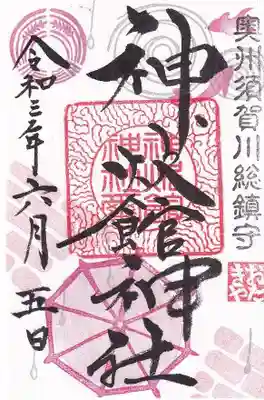 奥州須賀川総鎮守
神炊館神社
令和三年六月五日